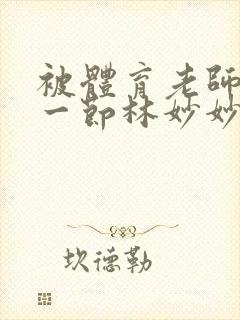 被體育老師
一節林妙妙
坎德勒